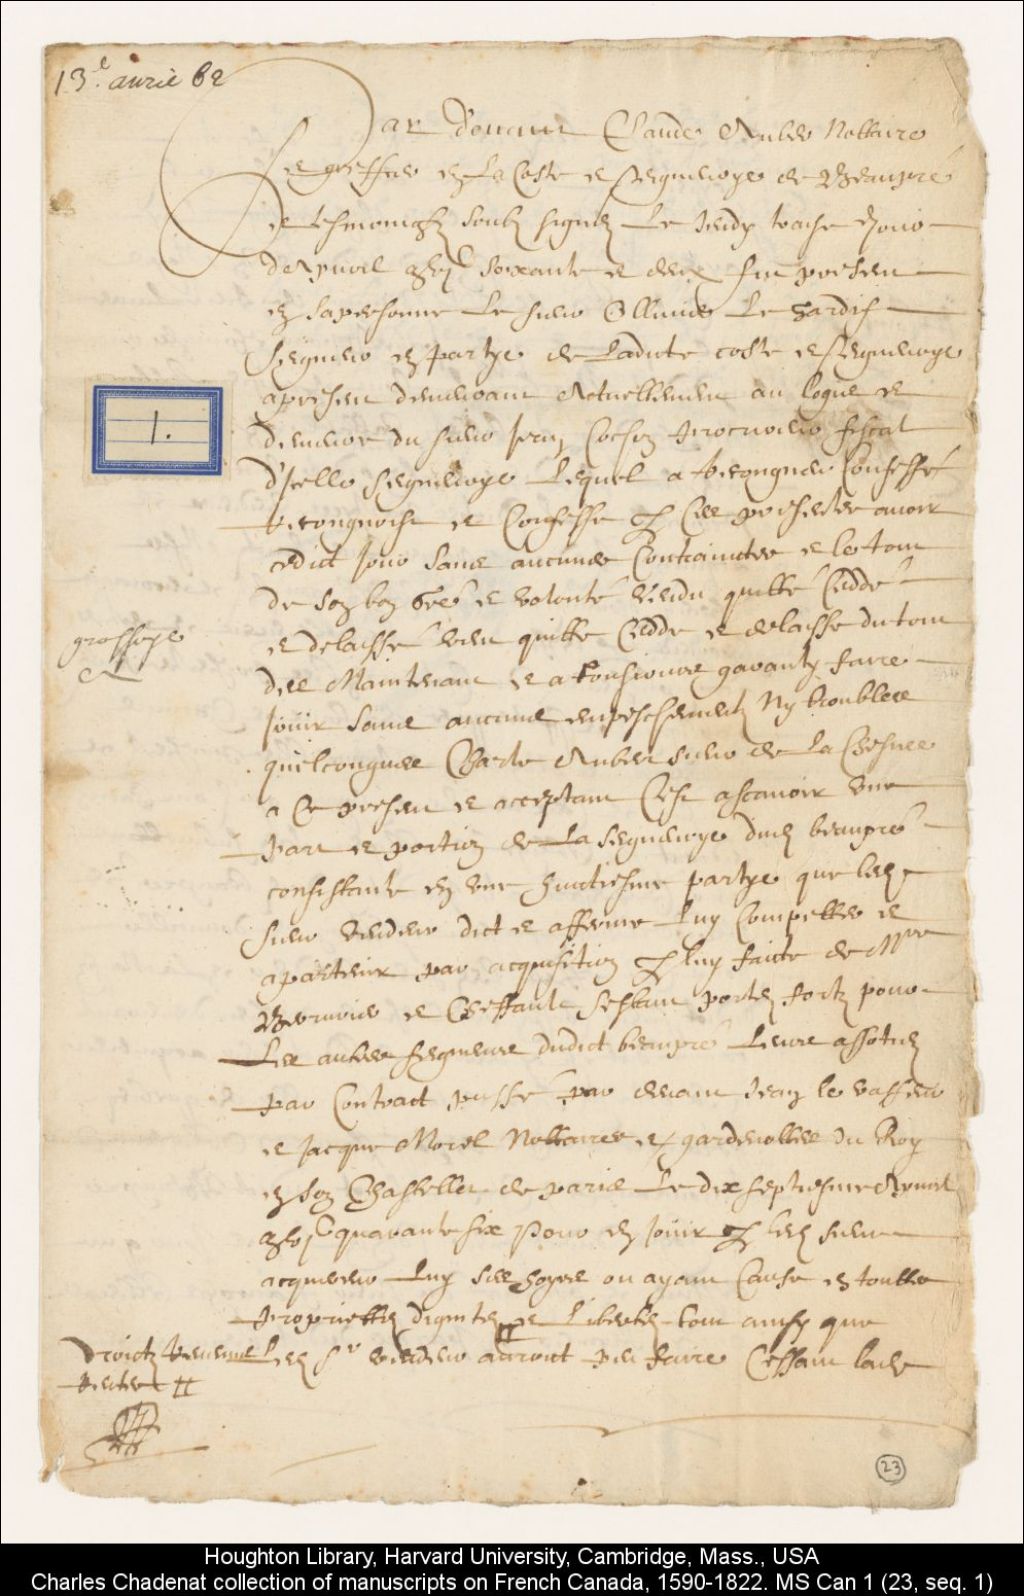 13.e auril 62
Par deuant Claude Auber Nottaire
et greffier en La Coste et seigneurye de Beaupré
et tesmoingz soubz signez Le Jeudy traise Jour
de Apuril soixante et deux fut present
en sa personne Le sieur Olliuier Le Hardif
seigneur en partye de Ladicte coste et seigneurye
apresent demeurant Actuellement au logis et
demeure du sieur Jean Cochon procureur fiscal
d'Icelle seigneurye Lequel a recongneu Confessé
recongnoist et Confesse
1.
cedict Jour sans aucunes Contrainctes
de son bon Gré et volonté vendu quitté Ceddé
et delaissé vend quitte Cedde et delaisse du tout
grossoyé
des Maintenant et a tousioures garanty faire
Jouir sans aucuns empeschements Ny troubles
quelconques Charle Auber sieur de La Chesnee
a Ce present et acceptant C'est ascauoir vne
part et portion de La seigneurye dud beaupré
consistante en vne huictiesme partye que led
sieur vendeur dict et afferme Luy Competter et
apartenir par acquisition luy faicte de
et Cheffault
Les autres seigneurs dudict beaupré Leurs assotiez
par Contract passé par deuant Jean le vasseur
et Jacque Morel Nottaires et gardenottes du Roy
en son Chastellet de paris Le dix septiesme Apuril
quarante six Pour en Jouir led sieur
acquereur Luy ses hoyrs ou ayant Cause en touttes
proprietez dignitez et Libertez tout ainsy que
droictz Reuenus
Led Sr vendeur auroit peu faire Cessant
23
Houghton Library, Harvard University, Cambridge, Mass., USA
Charles Chadenat collection of manuscripts on French Canada, 1590-1822. MS Can 1 (23, seq. 1)